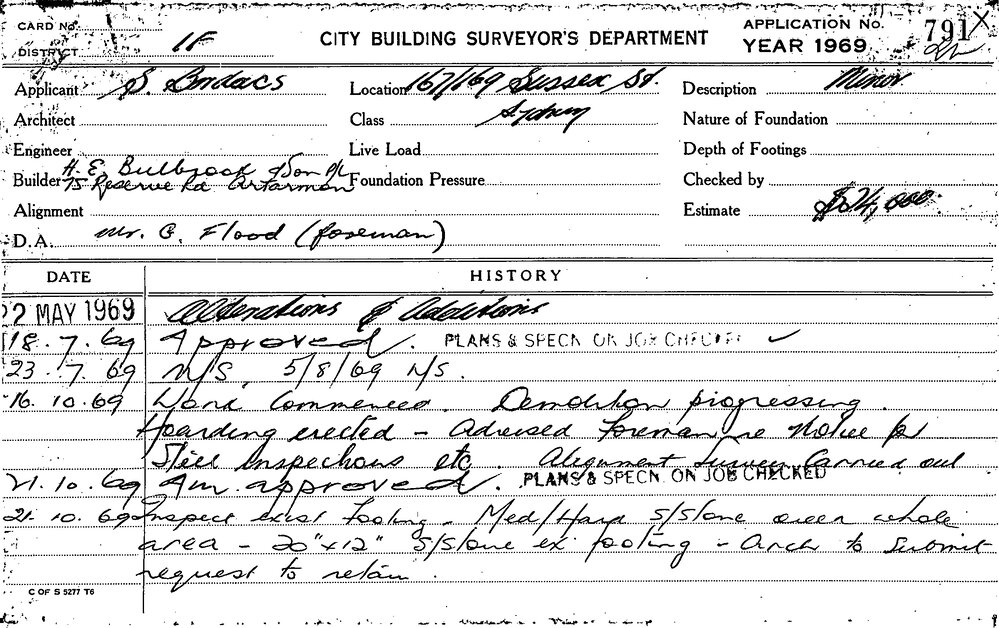 CARD No. APPLICATION No. 791
DISTRICT 1F CITY BUILDING SURVEYOR'S DEPARTMENT YEAR 1969
Applicant S. Bordacs Location 167/169 Sussex St. Description Minor
Architect Class Sydney Nature of Foundation
Engineer Live Load Depth of Footings
Builder H. E. Bulbrook & Son P/L Foundation Pressure Checked by
75 Reserve Rd Artarmon
Alignment Estimate $24,000
D.A. Mr. C. Flood (foreman)
DATE HISTORY
2 MAY 1969 Alterations & Additions
18.7.69 Approved. PLANS & SPECN ON JOB CHECKED ✓
23.7.69 N/S. 5/8/69 N/S.
16.10.69 Work Commenced. Demolition progressing.
Hoarding erected - Advised Foreman re Notice for
Steel Inspections etc. Alignment Survey Carried out
21.10.69 Am. approved. PLANS & SPECN. ON JOB CHECKED
21.10.69 Inspect exist footing - Med/Hard S/Stone over whole
area - 20"x12" S/Stone ex footing - Arch to Submit
request to retain.
C OF S 5277 T6